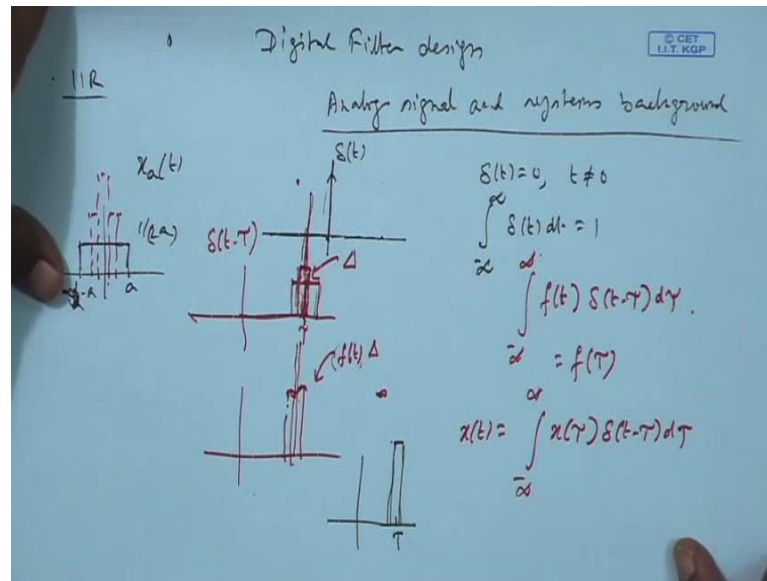 Digital Filter design
© CET
I.I.T. KGP
IIR
Analog signal and systems background
xₐ(t)
1/(2a)
-a
a
δ(t)
δ(t-τ)
Δ
τ
(f(t), Δ
τ
δ(t)=0, t≠0
∫_{-∞}^{∞} δ(t) dt = 1
∫_{-∞}^{∞} f(t) δ(t-τ) dτ.
= f(τ)
x(t) = ∫_{-∞}^{∞} x(τ) δ(t-τ) dτ